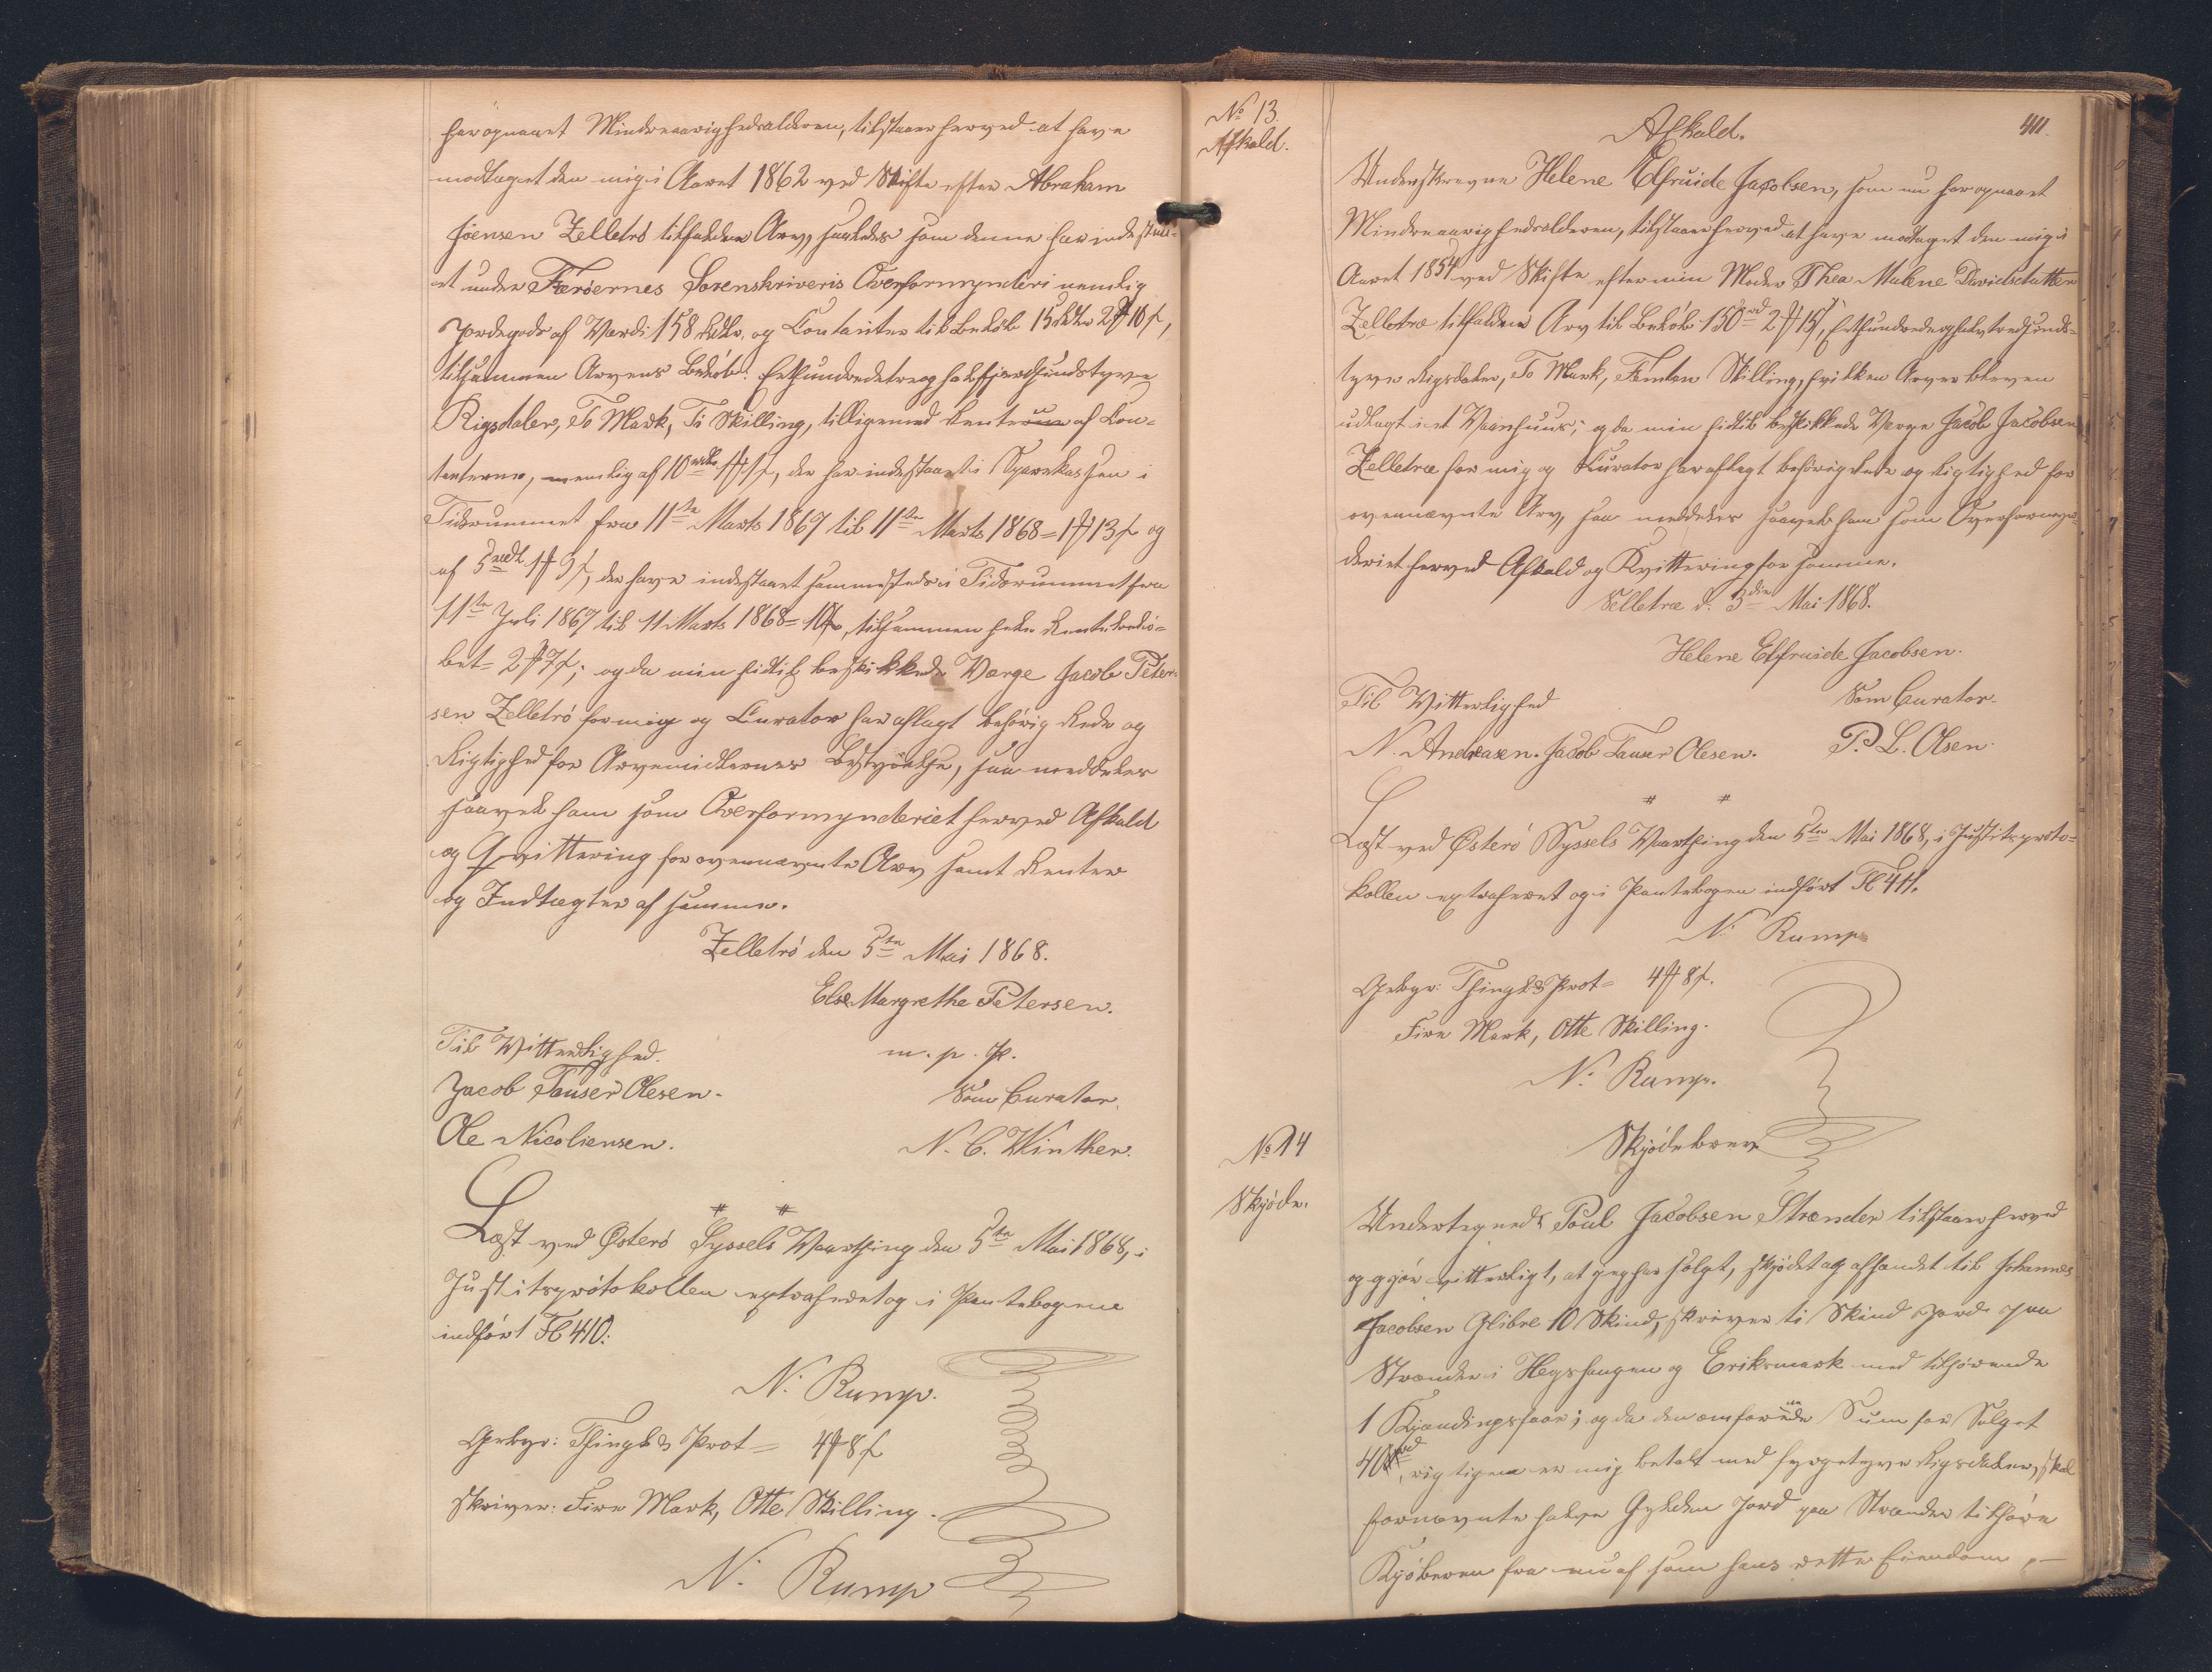 har opnaaet Mindreaarighedsalderen, tilstaaer herved at have
modtaget den mig i Aaret 1862 ved Skifte efter Abraham
Joensen Zelletrö tilfaldne Arv, saaledes som denne har indestaa-
et under Færöernes Sorenskriveris Overformynderi nemlig
Jordegods af Værdi 158 Rdlr. og Contanter til Beløb 15 Rdlr 2 ₰ 10 ß,
tilsammen Arvens Beløb: Ethundredetreoghalvfjerdsindstyve
Rigsdaler, To Mark, Ti Skilling, tilligemed Renterne af Con-
tanterne, nemlig af 10 rdlr 1 ₰ 1 ß, der har indestaaet i Sparekassen i
Tidsrummet fra 11te Marts 1867 til 11te Marts 1868 = 1 ₰ 13 ß og
af 5 rdl 1 ₰ 9 ß, der have indestaaet sammesteds i Tidsrummet fra
11te Juli 1867 til 11 Marts 1868 = 10 ß, tilsammen hele Rentebelö-
bet = 2 ₰ 7 ß; og da min hidtil beskikkede Værge Jacob Peter-
sen Zelletrö for mig og Curator har aflagt behörig Rede og
Rigtighed for Arvemidlernes Bestyrelse, saa meddeles
saavel ham som Overformynderiet herved Afkald
og Qvittering for ovennævnte Arv samt Renter
og Indtægter af samme.
Zelletrö den 5te Mai 1868.
Else Margrethe Petersen.
Til Vitterlighed. m. p. P.
Jacob Tauser Olesen. Som Curator.
Ole Nicoliensen. N. C. Winther.
Læst ved Østerö Syssels Vaarthing den 5te Mai 1868, i
Justitsprotokollen extraheret og i Pantebogen
indfört Fl 410:
N. Rump.
Gebyr: Thingl. & Prot = 4 ₰ 8 ß
skriver: Fire Mark, Otte Skilling.
N. Rump
No 13.
Afkald.
411.
Afkald.
Underskrevne Helene Elfruide Jacobsen, som nu har opnaaet
Mindreaarighedsalderen, tilstaaer herved at have modtaget den mig i
Aaret 1854 ved Skifte efter min Moder Thea Malene Davidsdatter
Zelletræ tilfaldne Arv til Beløb 150 rd 2 ₰ 15 ß, Ethundredeoghalvtredsinds-
tyve Rigsdaler, To Mark, Femten Skilling, hvilken Arv er bleven
udlagt i et Vaanhuus; og da min hidtil beskikkede Værge Jacob Jacobsen
Zelletræ for mig og Kurator har aflagt behörig Rede og Rigtighed for
ovennævnte Arv, saa meddeles saavel ham som Overformyn-
deriet herved Afkald og Kvittering for samme.
Selletræ d. 5die Mai 1868.
Helene Elfruide Jacobsen.
Til Vitterlighed Som Curator.
N. Andreasen. Jacob Tauser Olesen. P. L. Olsen.
Læst ved Østerö Syssels Vaarthing den 5te Mai 1868, i Justitsproto-
kollen extraheret og i Pantebogen indfört Fl 411.
N. Rump
Gebyr: Thingl. & Prot = 4 ₰ 8 ß.
Fire Mark, Otte Skilling.
N. Rump.
No 14
Skjöde.
Skjödebrev
Undertegnede Poul Jacobsen Strænder tilstaaer herved
og gjör vitterligt, at jeg har solgt, skjödet og afhændet til Johannes
Jacobsen Glibre 10 Skind, skriver ti Skind Jord paa
Strænder i Heyshaugen og Eriksmark med tilhörende
1 Kjændingsfaar; og da den omforenede Sum for Salget
40 rd, rigtigen er mig betalt med fyrgetyve Rigsdaler, skal
fornævnte halve Gylden Jord paa Strænder tilhøre
Kjöberen fra nu af som hans rette Eiendom,